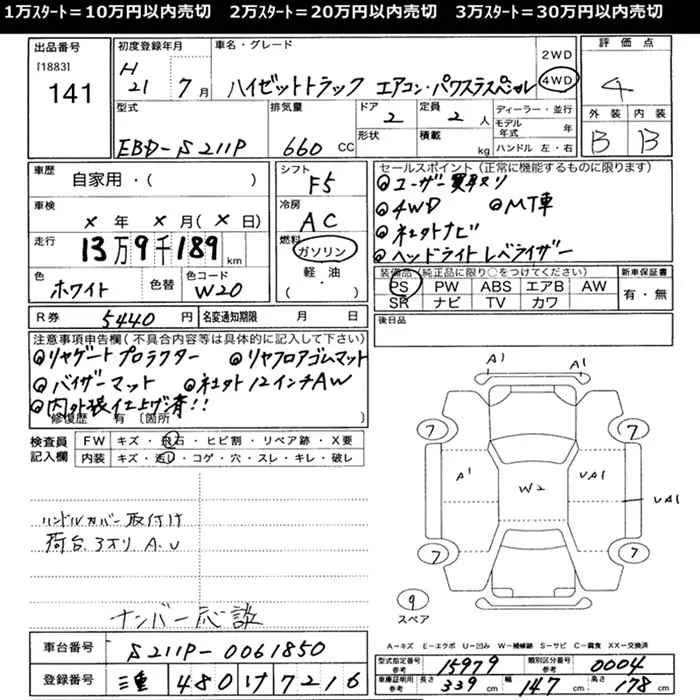 1万ｽﾀｰﾄ＝10万円以内売切　2万ｽﾀｰﾄ＝20万円以内売切　3万ｽﾀｰﾄ＝30万円以内売切
出品番号
[1883]
141
初度登録年月
H 21 年 7 月
車名・グレード
ハイゼットトラック エアコン・パワステスペシャル
2WD
4WD
評価点
4
外装 内装
B B
型式
EBD-S211P
排気量
660 CC
ドア 2
形状
定員 2 人
積載 kg
ディーラー・並行
モデル年式 年
ハンドル 左・右
車歴
自家用・( )
車検
× 年 × 月 ( × 日)
走行
13万9千189 km
色
ホワイト
色替
色コード
W20
シフト
F5
冷房
AC
燃料
ガソリン
軽・油
( ・ )
セールスポイント（正常に機能するものに限ります）
◎ユーザー買取り
◎4WD ◎MT車
◎社外ナビ
◎ヘッドライトレベライザー
装備品（純正品に限り○をつけてください）
PS PW ABS エアB AW
SR ナビ TV カワ
新車保証書
有・無
R券 5440 円
名変通知期限 月 日
後日品
注意事項申告欄（不具合内容等は具体的に記入して下さい）
◎リヤゲートプロテクター ◎リヤフロアゴムマット
◎バイザーマット ◎社外12インチAW
◎内外張仕上げ済!!
修復歴 有〔箇所
検査員記入欄
FW キズ・飛石・ヒビ割・リペア跡・X要
内装 キズ・汚レ・コゲ・穴・スレ・キレ・破レ
ハンドルカバー取付け
荷台 スオリ A.U
ナンバー応談
A1 A1
7 7
A1 W2 UA1 UA1
7 7
9
スペア
A－キズ E－エクボ U－凹み W－補修跡 S－サビ C－腐食 XX－交換済
車台番号 S211P-0061850
登録番号 三重 480 け 7216
型式指定番号 参考 15979
類別区分番号 参考 0004
車庫証明用 参考 長さ 339 cm 幅 147 cm 高さ 178 cm